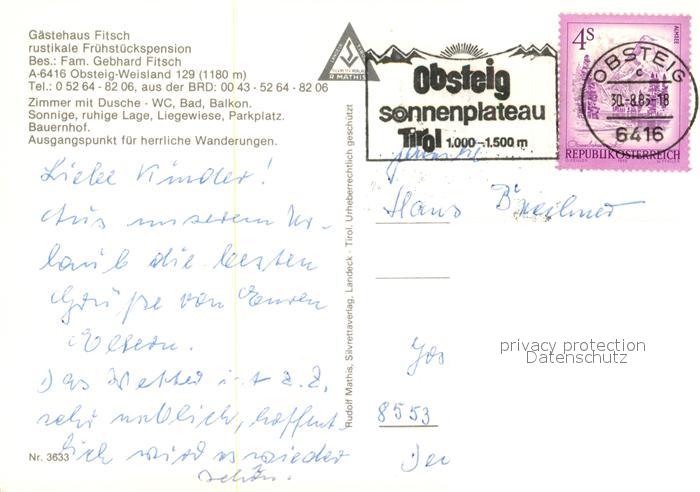 Gästehaus Fitsch
rustikale Frühstückspension
Bes.: Fam. Gebhard Fitsch
A-6416 Obsteig-Weisland 129 (1180 m)
Tel.: 0 52 64 - 82 06, aus der BRD: 00 43 - 52 64 - 82 06
Zimmer mit Dusche · WC, Bad, Balkon.
Sonnige, ruhige Lage, Liegewiese, Parkplatz.
Bauernhof.
Ausgangspunkt für herrliche Wanderungen.
Liebe Kinder!
Aus unserem Ur-
laub die besten
Grüße von Euren
Eltern.
Das Wetter ist z.Z.
sehr neblich, hoffent-
lich wird es wieder
schön.
Nr. 3633
Rudolf Mathis, Silvrettaverlag, Landeck - Tirol. Urheberrechtlich geschützt
R MATHIS
Obsteig
sonnenplateau
Tirol 1.000–1.500 m
4S
ALMSEE
REPUBLIK ÖSTERREICH
OBSTEIG
c
30.-8.85-18
6416
Familie
Hans
privacy protection
Datenschutz
8553